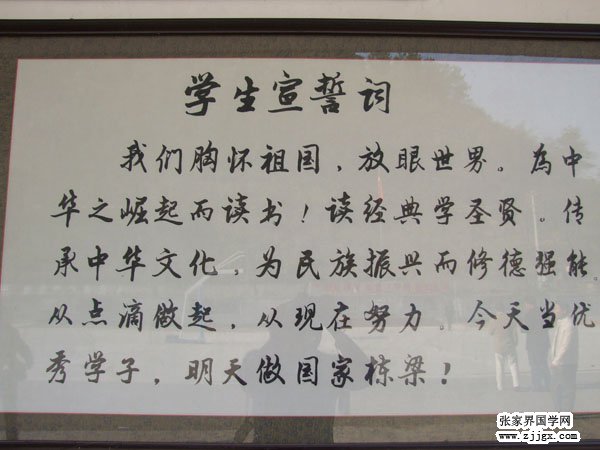 学生宣誓词
我们胸怀祖国，放眼世界。为中
华之崛起而读书！读经典学圣贤。传
承中华文化，为民族振兴而修德强能。
从点滴做起，从现在努力。今天当优
秀学子，明天做国家栋梁！
张家界国学网
www.zjjgx.com